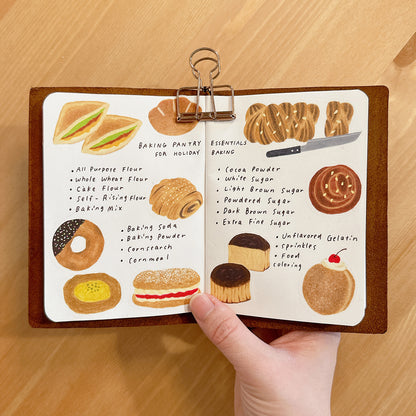 BAKING PANTRY ESSENTIALS
FOR HOLIDAY BAKING
• All Purpose Flour
• Whole Wheat Flour
• Cake Flour
• Self-Rising Flour
• Baking Mix
• Baking Soda
• Baking Powder
• Cornstarch
• Cornmeal
• Cocoa Powder
• White Sugar
• Light Brown Sugar
• Powdered Sugar
• Dark Brown Sugar
• Extra Fine Sugar
• Unflavored Gelatin
• sprinkles
• Food
coloring